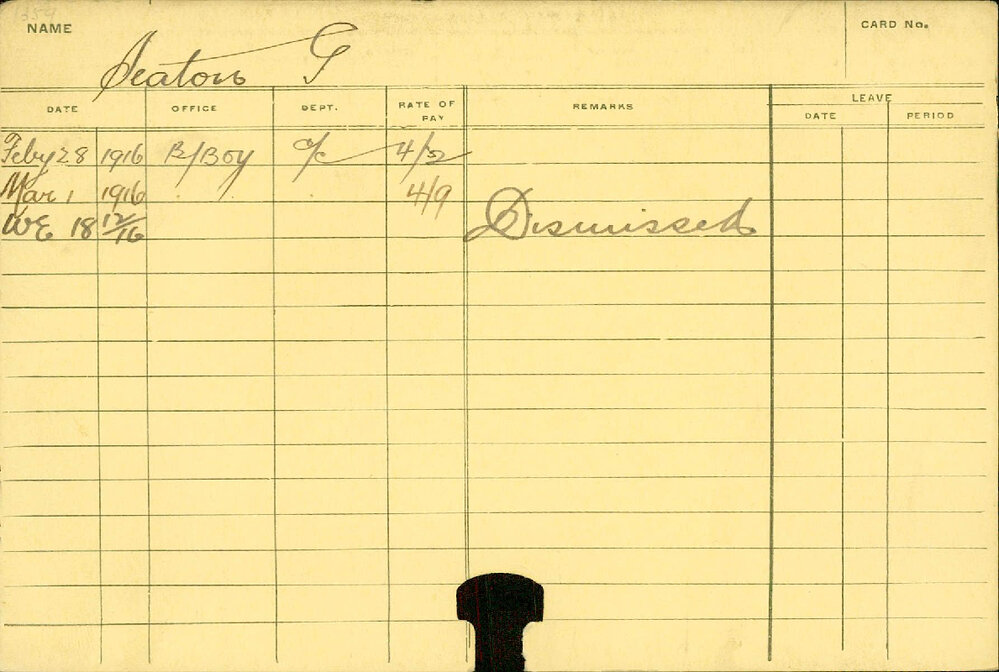 NAME Seaton G CARD No.
DATE OFFICE DEPT. RATE OF PAY REMARKS LEAVE
DATE PERIOD
Feby 28 1916 R/Boy 4/2
Mar 1 1916 " " 4/9
WE 18 12/16 Dismissed